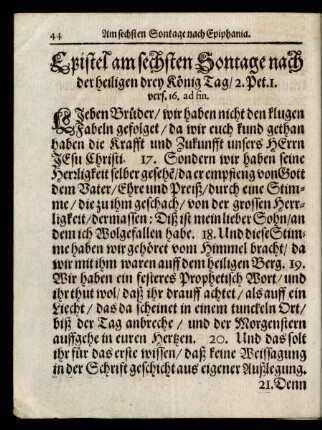 44 Am sechsten Sontage nach Epiphania.
Epistel am sechsten Sontage nach
der heiligen drey König Tag/ 2. Pet. 1.
vers. 16. ad fin.
LIeben Brüder/ wir haben nicht den klugen
Fabeln gefolget/ da wir euch kund gethan
haben die Krafft und Zukunfft unsers HErrn
JEsu Christi. 17. Sondern wir haben seine
Herꝛligkeit selber gesehẽ/ da er empfieng von Gott
dem Vater/ Ehre und Preiß/ durch eine Stim-
me/ die zu ihm geschach/ von der grossen Herr-
ligkeit/ dermassen: Diß ist mein lieber Sohn/ an
dem ich Wolgefallen habe. 18. Und diese Stim-
me haben wir gehöret vom Himmel bracht/ da
wir mit ihm waren auff dem heiligen Berg. 19.
Wir haben ein festeres Prophetisch Wort/ und
ihr thut wol/ daß ihr drauff achtet/ als auff ein
Liecht/ das da scheinet in einem tunckeln Ort/
biß der Tag anbreche/ und der Morgenstern
auffgehe in euren Hertzen. 20. Und das solt
ihr für das erste wissen/ daß keine Weissagung
in der Schrifft geschicht aus eigener Außlegung.
21. Denn